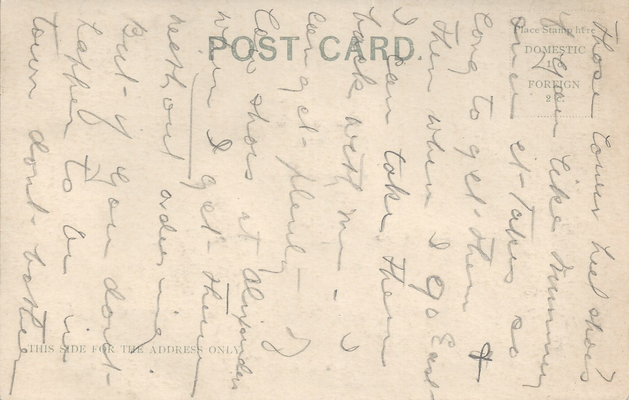 POST CARD.
Place Stamp here
DOMESTIC
1c.
FOREIGN
2c.
THIS SIDE FOR THE ADDRESS ONLY
those lower heel shoes
if you like
since it takes so
long to get them &
then when I go East
I can take them
back with me - I
can get plenty of
low shoes at Alexanders
when I get there
without ordering
But if you dont
happen to be in
town dont bother